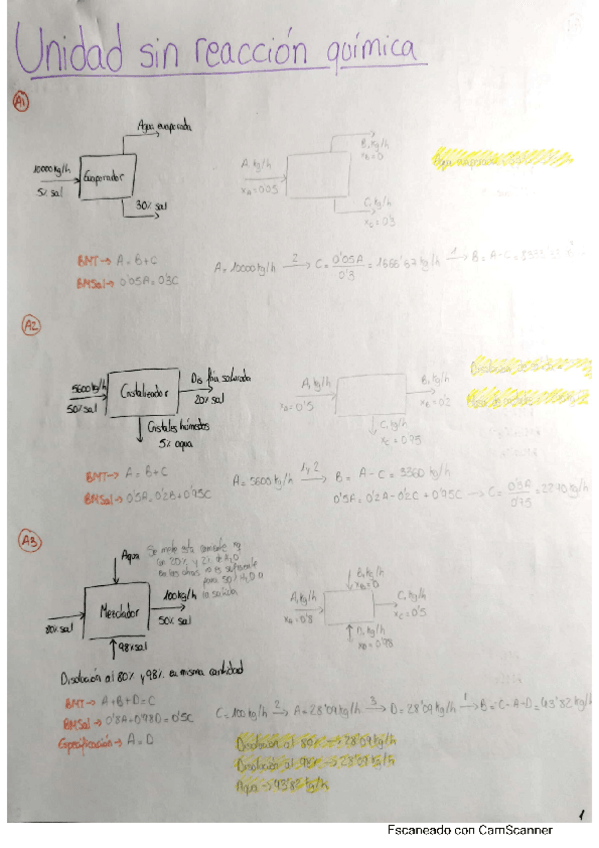 Unidad sin reacción química
A1
Agua evaporada
10000kg/h
Evaporador
5% sal
30% sal
A, kg/h
xA=0'05
B, kg/h
xB=0
C, kg/h
xC=0'3
Agua evaporada
BMT→ A=B+C
BMSal→ 0'05A=0'3C
A=10000kg/h 2→ C= 0'05A/0'3 =1666'67kg/h 1→ B=A-C=
A2
5600kg/h
50% sal
Cristalizador
Dis fría saturada
20% sal
Cristales húmedos
5% agua
A, kg/h
xA=0'5
B, kg/h
xB=0'2
C, kg/h
BMT→ A=B+C
BMSal→ 0'5A=0'2B+0'95C
A=5600kg/h 1y2→ B= A-C=3360kg/h
0'5A=0'2A-0'2C+0'95C → C=
A3
Agua
Se mete esta corriente xq
con 20% y 2% de H2O
en las otras no es suficiente
para 50% H2O a
la salida
80% sal
Mezclador
100kg/h
50% sal
98% sal
A, kg/h
xA=0'8
B, kg/h
xB=0
C, kg/h
xC=0'5
D, kg/h
xD=0'98
Disolución al 80% y 98% en misma cantidad
BMT→ A+B+D=C
BMSal→ 0'8A+0'98D=0'5C
Especificación→ A=D
C=100kg/h 2→ A=28'09kg/h 3→ D=28'09kg/h 1→ B=C-A-D=43'82kg/h
Disolución al 80% → 28'09kg/h
Disolución al 98% → 28'09kg/h
Agua → 43'82kg/h
1
Escaneado con CamScanner